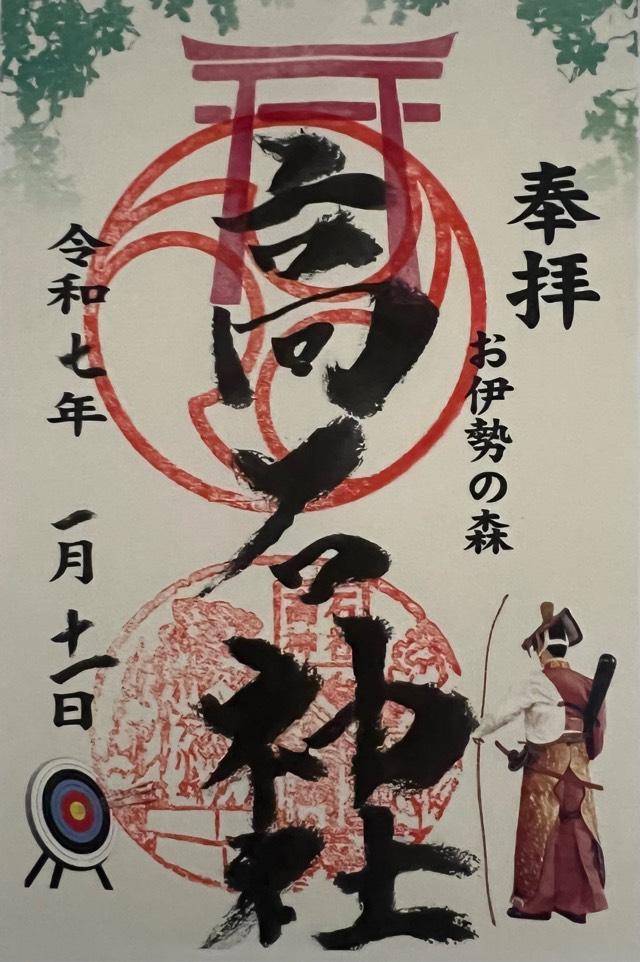 奉拝
お伊勢の森
高石神社
令和七年 一月十一日